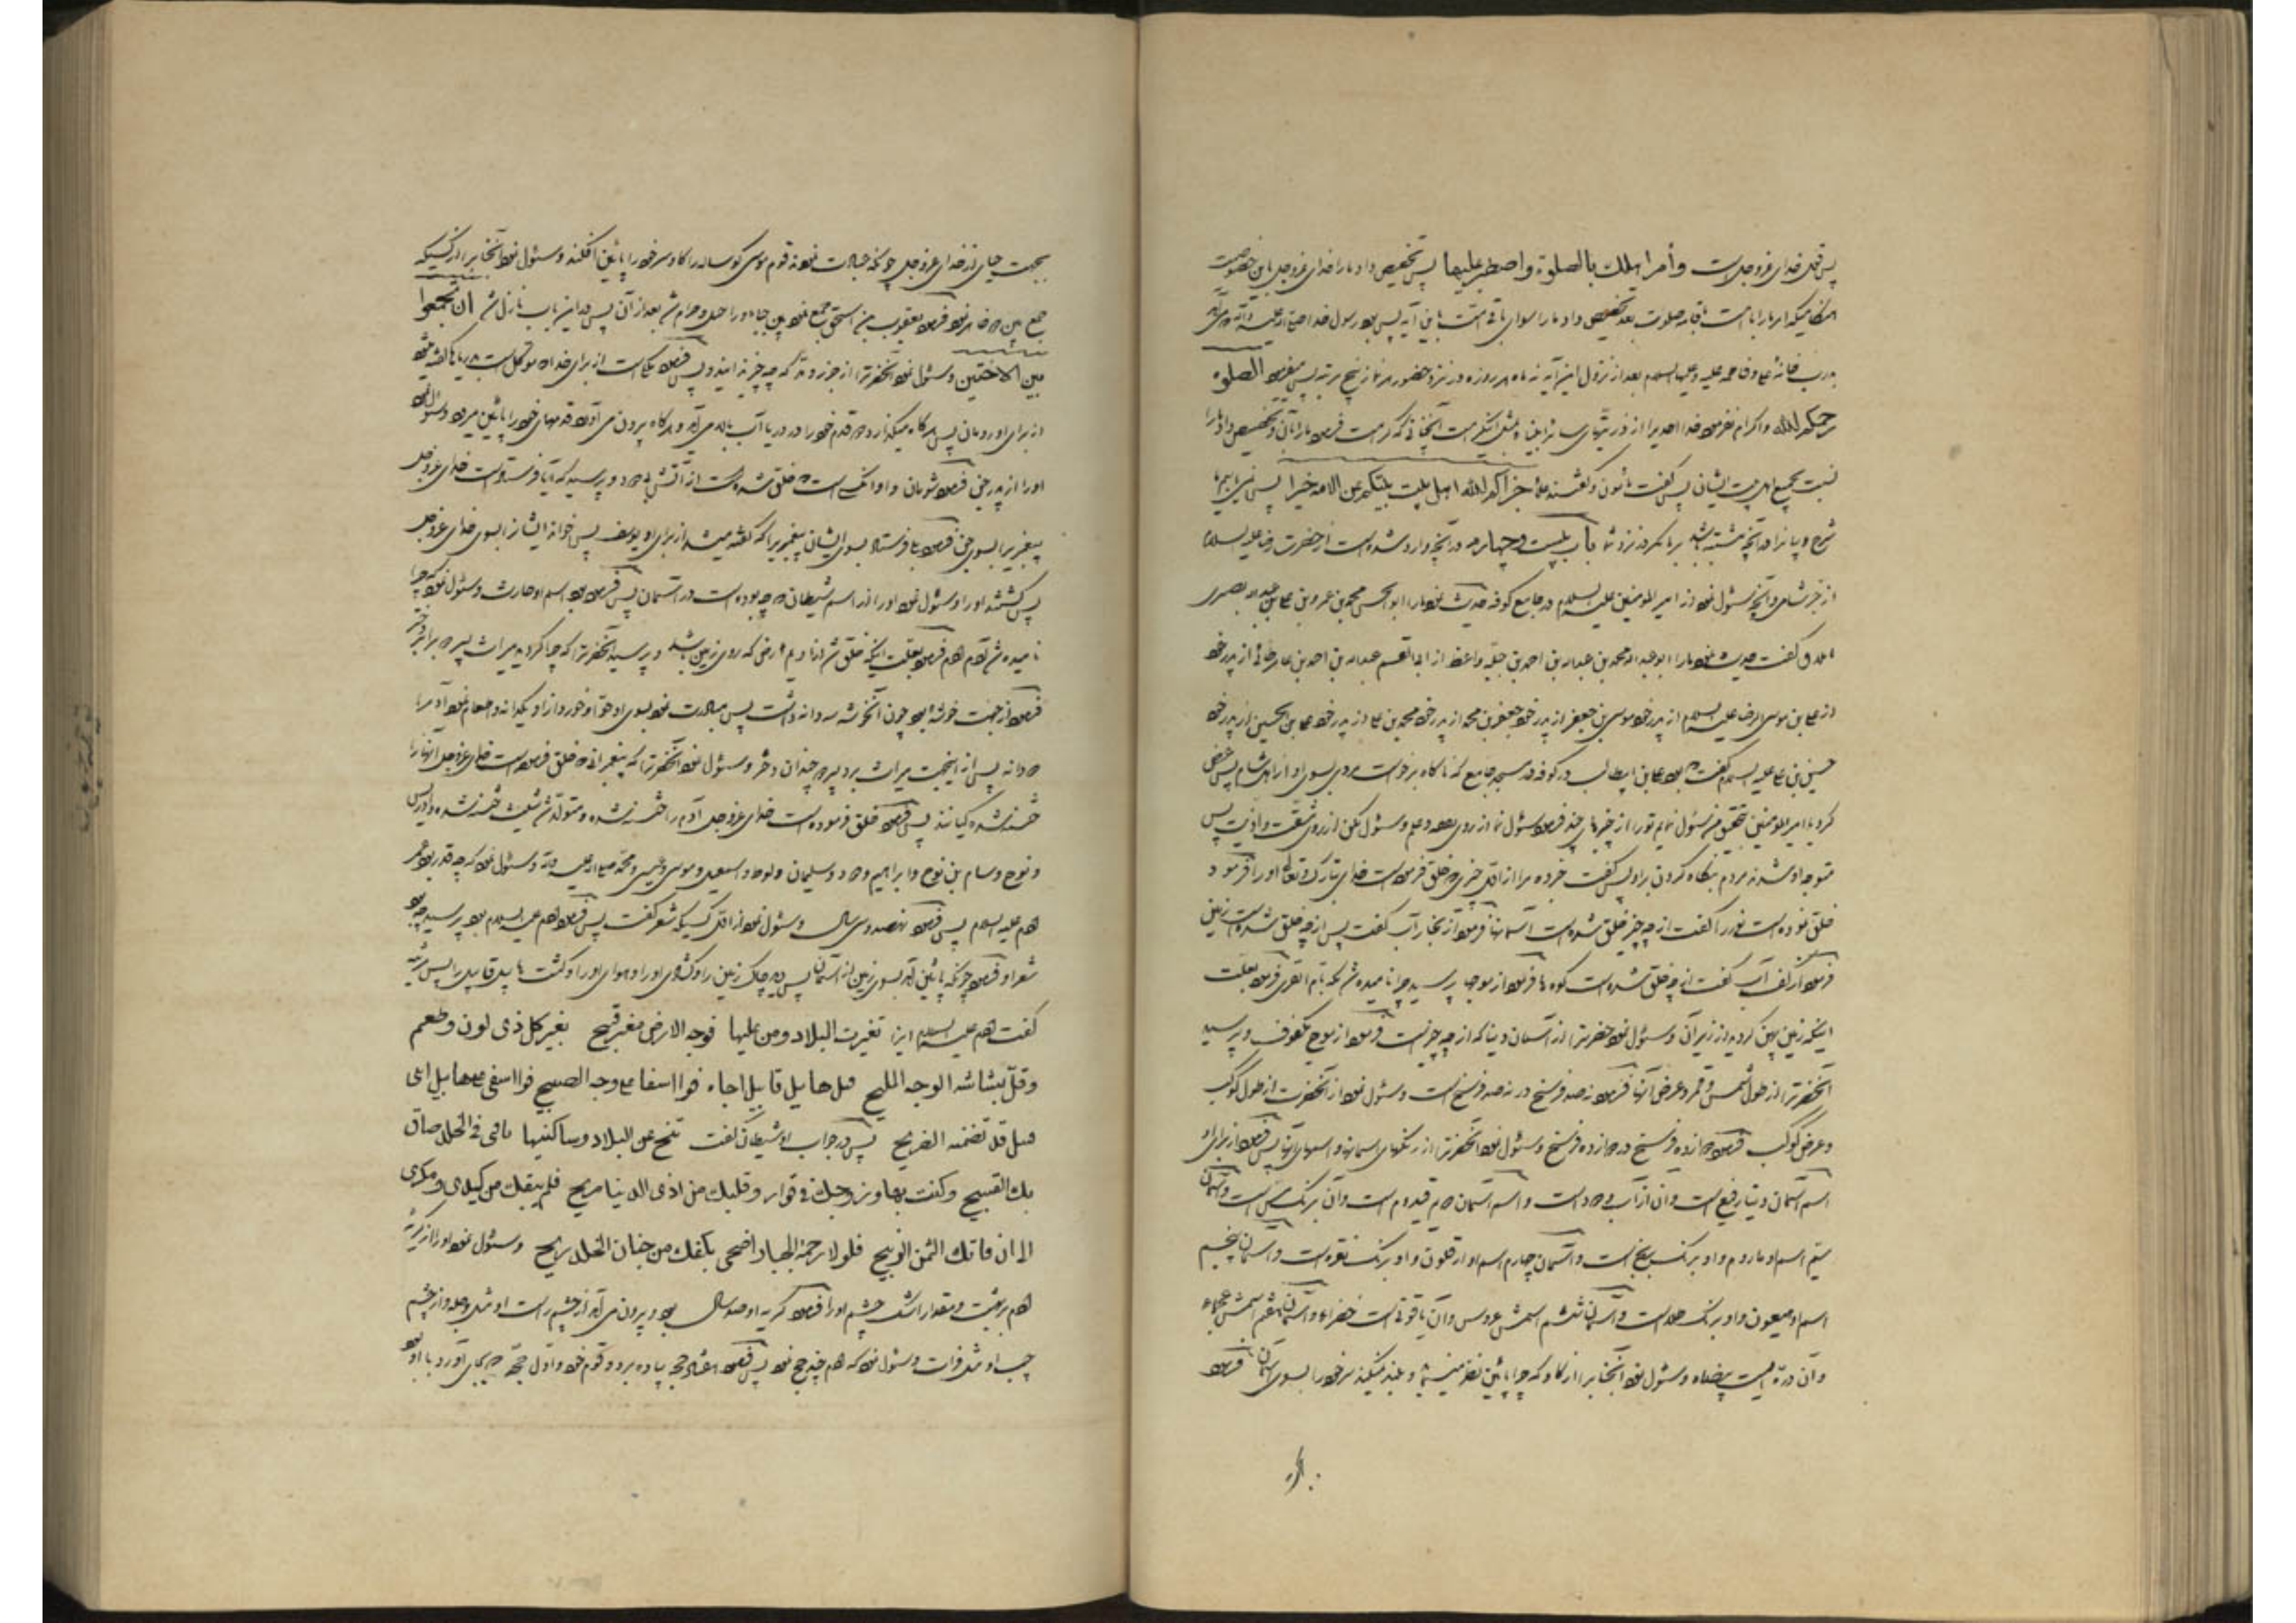 پس قول خدای عزوجل است وأمر اهلك بالصلوة واصطبر عليها پس تخصیص داد ما را خدای عزوجل باین خصوصیت
بدرب خانهٔ علی و فاطمه علیه و علیها السلام بعد از نزول این آیه نه ماه هر روزه در نزد حضور هر نماز پنج مرتبه پس میفرمود الصلوة
رحمكم الله واکرام نفرمود خدا احدیرا از ذریتهای سائر انبیاء بمثل این کرامت آنچنانی که کرامت فرمود ما را بآن و تخصیص داد ما را
نسبت بجمیع اهل بیت ایشان پس گفت مأمون و گفتند علماء جزاكم الله اهل بيت نبيكم عن الامة خيرا پس نمی‌یابیم ما
شرح و بیانرا در آنچه مشتبه باشد بر ما مگر در نزد شما باب بیست و چهارم در آنچه وارد شده است از حضرت رضا علیه السلام
از خبر شامی و آنچه مسئول نمود از امیر المؤمنین علیه السلام در جامع کوفه حدیث نمود ما را ابو الحسن محمد بن عمرو بن علی بن عبد الله بصری
گفت حدیث نمود ما را ابو عبد الله محمد بن عبد الله بن احمد بن جبله واعظ از ابو القسم عبد الله بن احمد بن عامر طائی از پدر خود
از علی بن موسی الرضا علیه السلام از پدر خود موسی بن جعفر از پدر خود جعفر بن محمد از پدر خود محمد بن علی از پدر خود علی بن الحسین از پدر خود
حسین بن علی علیه السلام گفت که بود علی بن ابیطالب در کوفه در مسجد جامع که ناگاه برخواست مردی بسوی او از اهل شام پس عرض
کرد یا امیر المؤمنین بتحقیق من مسئول نمایم تو را از چیزهای چند فرمود مسئول نما از روی فهم و علم و مسئول مکن از روی مشقت و اذیت پس
متوجه او شدند مردم بنگاه کردن براو پس گفت خبر ده مرا از اول چیزی که خلق فرموده است خدای تبارک و تعالی او را فرمود
خلق نموده است نور را گفت از چه چیز خلق شده است آسمانها فرمود از بخار آب گفت پس از چه خلق شده است زمین
فرمود از کف آب گفت از چه خلق شده است کوه ها فرمود از موجها پرسید چرا نامیده شد مکه بام القری فرمود بعلت
اینکه زمین پهن گردید از زیر آن و مسئول نمود حضرترا از آسمان دنیا که از چه چیز است فرمود از موج مکفوف و پرسید
آنحضرترا از طول شمس و قمر و عرض آنها فرمود نهصد فرسخ در نهصد فرسخ است و مسئول نمود از آنحضرت از طول کوکب
و عرض کوکب فرمود دوازده فرسخ در دوازده فرسخ و مسئول نمود آنحضرترا از رنگهای آسمانها و اسمهای آنها پس فرمود از برای او
اسم آسمان دنیا رفیع است و آن از آب و دود است و اسم آسمان دوم قیدوم است و آن برنگ مس است و آسمان
سیم اسم او ماروم و او برنگ برنج است و آسمان چهارم اسم او ارقلون و او برنگ نقره است و آسمان پنجم
اسم او هیعون و او برنگ طلاست و آسمان ششم اسمش عروس و آن یاقوتی است خضراء و آسمان هفتم اسمش عجماء
و آن درّه ایست بیضاء و مسئول نمود آنجناب را از گاو که چرا پائین نظر میکند و بلند نمیکند سر خود را بسوی آسمان فرمود
بجهت حیای از خدای عزوجل چونکه عبادت نمودند قوم موسی گوساله را گاو سر خود را پائین افکند و مسئول نمود آنجناب را از کسیکه
جمع بین دو خواهر نمود فرمود یعقوب بن اسحق جمع نمود بین حبار و راحیل و حرام شد بعد از آن پس در این باب نازل شد ان تجمعوا
بين الاختين و مسئول نمود آنحضرترا از جزر و مد که چه چیزند ایندو پس فرمود ملکی است از برای خدا که موکل است بدریاها گفته میشود
از برای او رومان پس هرگاه میگذارد دو قدم خود را در دریا آب بالا می آید و هرگاه بیرون می آورد قدمهای خود را پائین میرود و مسئول نمود
او را از پدر جن فرمود شومان و او آنکسی است که خلق شده است از آتش بی دود و پرسید که آیا فرستاده است خدای عزوجل
پیغمبریرا بسوی جن فرمود بلی فرستاد بسوی ایشان پیغمبریرا که گفته میشد از برای او یوسف پس خواند ایشانرا بسوی خدای عزوجل
پس کشتند او را و مسئول نمود او را از اسم شیطان که چه بوده است در آسمان پس فرمود بود اسم او حارث و مسئول نمود که چرا
نامیده شد آدم آدم فرمود بعلت اینکه خلق شد از ادیم ارضی که روی زمین باشد و پرسید آنحضرترا که چرا گردید میراث پسر دو برابر دختر
فرمود از جهت خوشهٔ بود چون آنخوشه سه دانه داشت پس مبادرت نمود بسوی او حوّا و خورد از او یکدانه و طعام نمود آدم را
دو دانه پس از اینجهت میراث برد پسر دو چندان دختر و مسئول نمود آنحضرترا که پیغمبرانی که خلق فرموده است خدای عزوجل آنها را
ختنه شده کیانند پس فرمود خلق فرموده است خدای عزوجل آدم را ختنه شده و متولد شد شیث ختنه شده و ادریس
و نوح و سام بن نوح و ابراهیم و داود و سلیمان و لوط و اسمعیل و موسی و عیسی و محمد صلی الله علیه و آله و مسئول نمود که چه قدر بود عمر
آدم علیه السلام پس فرمود نهصد و سی سال و مسئول نمود از اول کسیکه شعر گفت پس فرمود آدم علیه السلام بود پرسید چه بود
شعر او فرمود چونکه پائین آمد بسوی زمین از آسمان پس دید خاک زمین را و گشادی او را و هوای او را و کشت هابیل قابیل را پس مرثیه
گفت آدم علیه السلام اینرا تغيرت البلاد ومن عليها فوجه الارض مغبر قبيح تغير كل ذى لون وطعم
وقل بشاشة الوجه المليح قتل هابيل قابيل اخاه فوا اسفا على وجه الصبيح فوا اسفى على هابيل ابنى
قتيل قد تضمنه الضريح پس در جواب او شیطان گفت تنح عن البلاد وساكنيها فبى فى الخلد ضاق
بك الفسيح وكنت بها وزوجك فى قرار وقلبك من اذى الدنيا مريح فلم ينفك من كيدى ومكرى
الى ان فاتك الثمن الربيح فلولا رحمة الجبار اضحى بكفك من جنان الخلد ريح و مسئول نمود او را از گریهٔ
آدم بر بهشت و مقدار اشک چشم او را فرمود گریه او صد سال بود و بیرون می آمد از چشم راست او مثل دجله و از چشم
چپ او مثل فرات و مسئول نمود که آدم چند حج نمود پس فرمود هفتاد حج پیاده برد و قوم خود و اول حجّی که بجای آورد با او بود